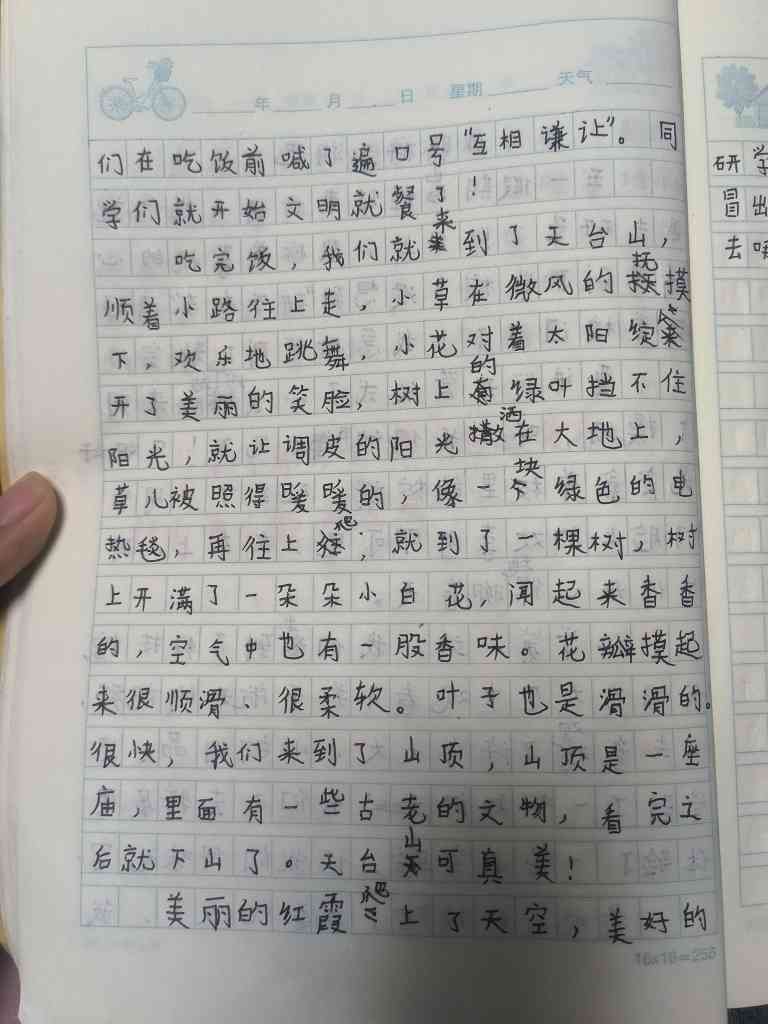 年 月 日 星期 天气
们在吃饭前喊了遍口号“互相谦让”。同
学们就开始文明就餐了!
吃完饭,我们就来到了天台山,
顺着小路往上走,小草在微风的抚摸
下,欢乐地跳舞,小花对着太阳绽
开了美丽的笑脸,树上的绿叶挡不住
阳光,就让调皮的阳光洒在大地上,
草儿被照得暖暖的,像一块绿色的电
热毯,再往上爬,就到了一棵树,树
上开满了一朵朵小白花,闻起来香香
的,空气中也有一股香味。花瓣摸起
来很顺滑、很柔软。叶子也是滑滑的。
很快,我们来到了山顶,山顶是一座
庙,里面有一些古老的文物,看完之
后就下山了。天台山可真美!
美丽的红霞爬上了天空,美好的
16×16=256
研学
冒出
去